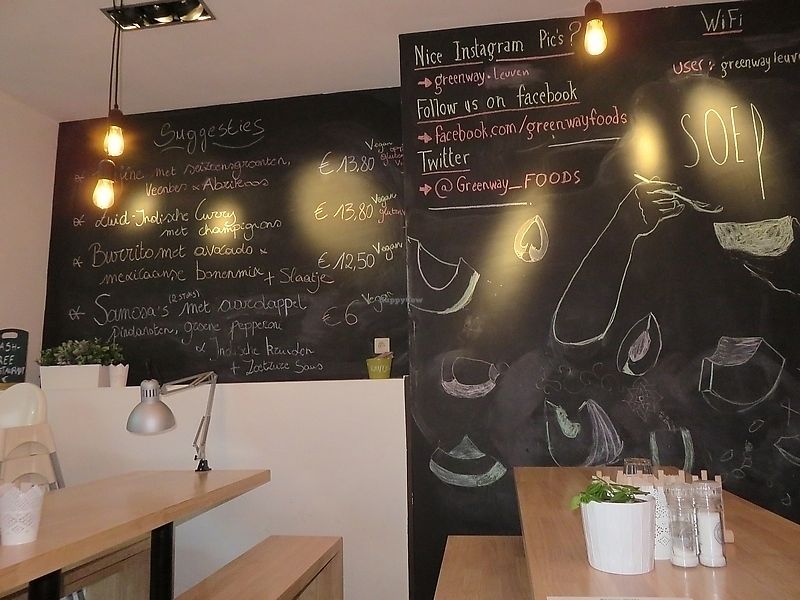 Suggesties
met seizoensgroenten,
Veenbes & Abrikoos
€ 13,80 Vegan
Zuid-Indische Curry
met champignons
€ 13,80 Vegan
Burrito met avocado &
mexicaanse bonenmix + Slaatje
€ 12,50 Vegan
Samosa's (2 stuks) met aardappel
Pindanoten, groene pepperoni
& Indische kruiden
+ Zoetzure Saus
€ 6 Vegan
Nice Instagram Pic's?
greenway.leuven
Follow us on facebook
facebook.com/greenwayfoods
Twitter
@Greenway_FOODS
WiFi
USER: greenwayleuve
SOEP
HappyCow